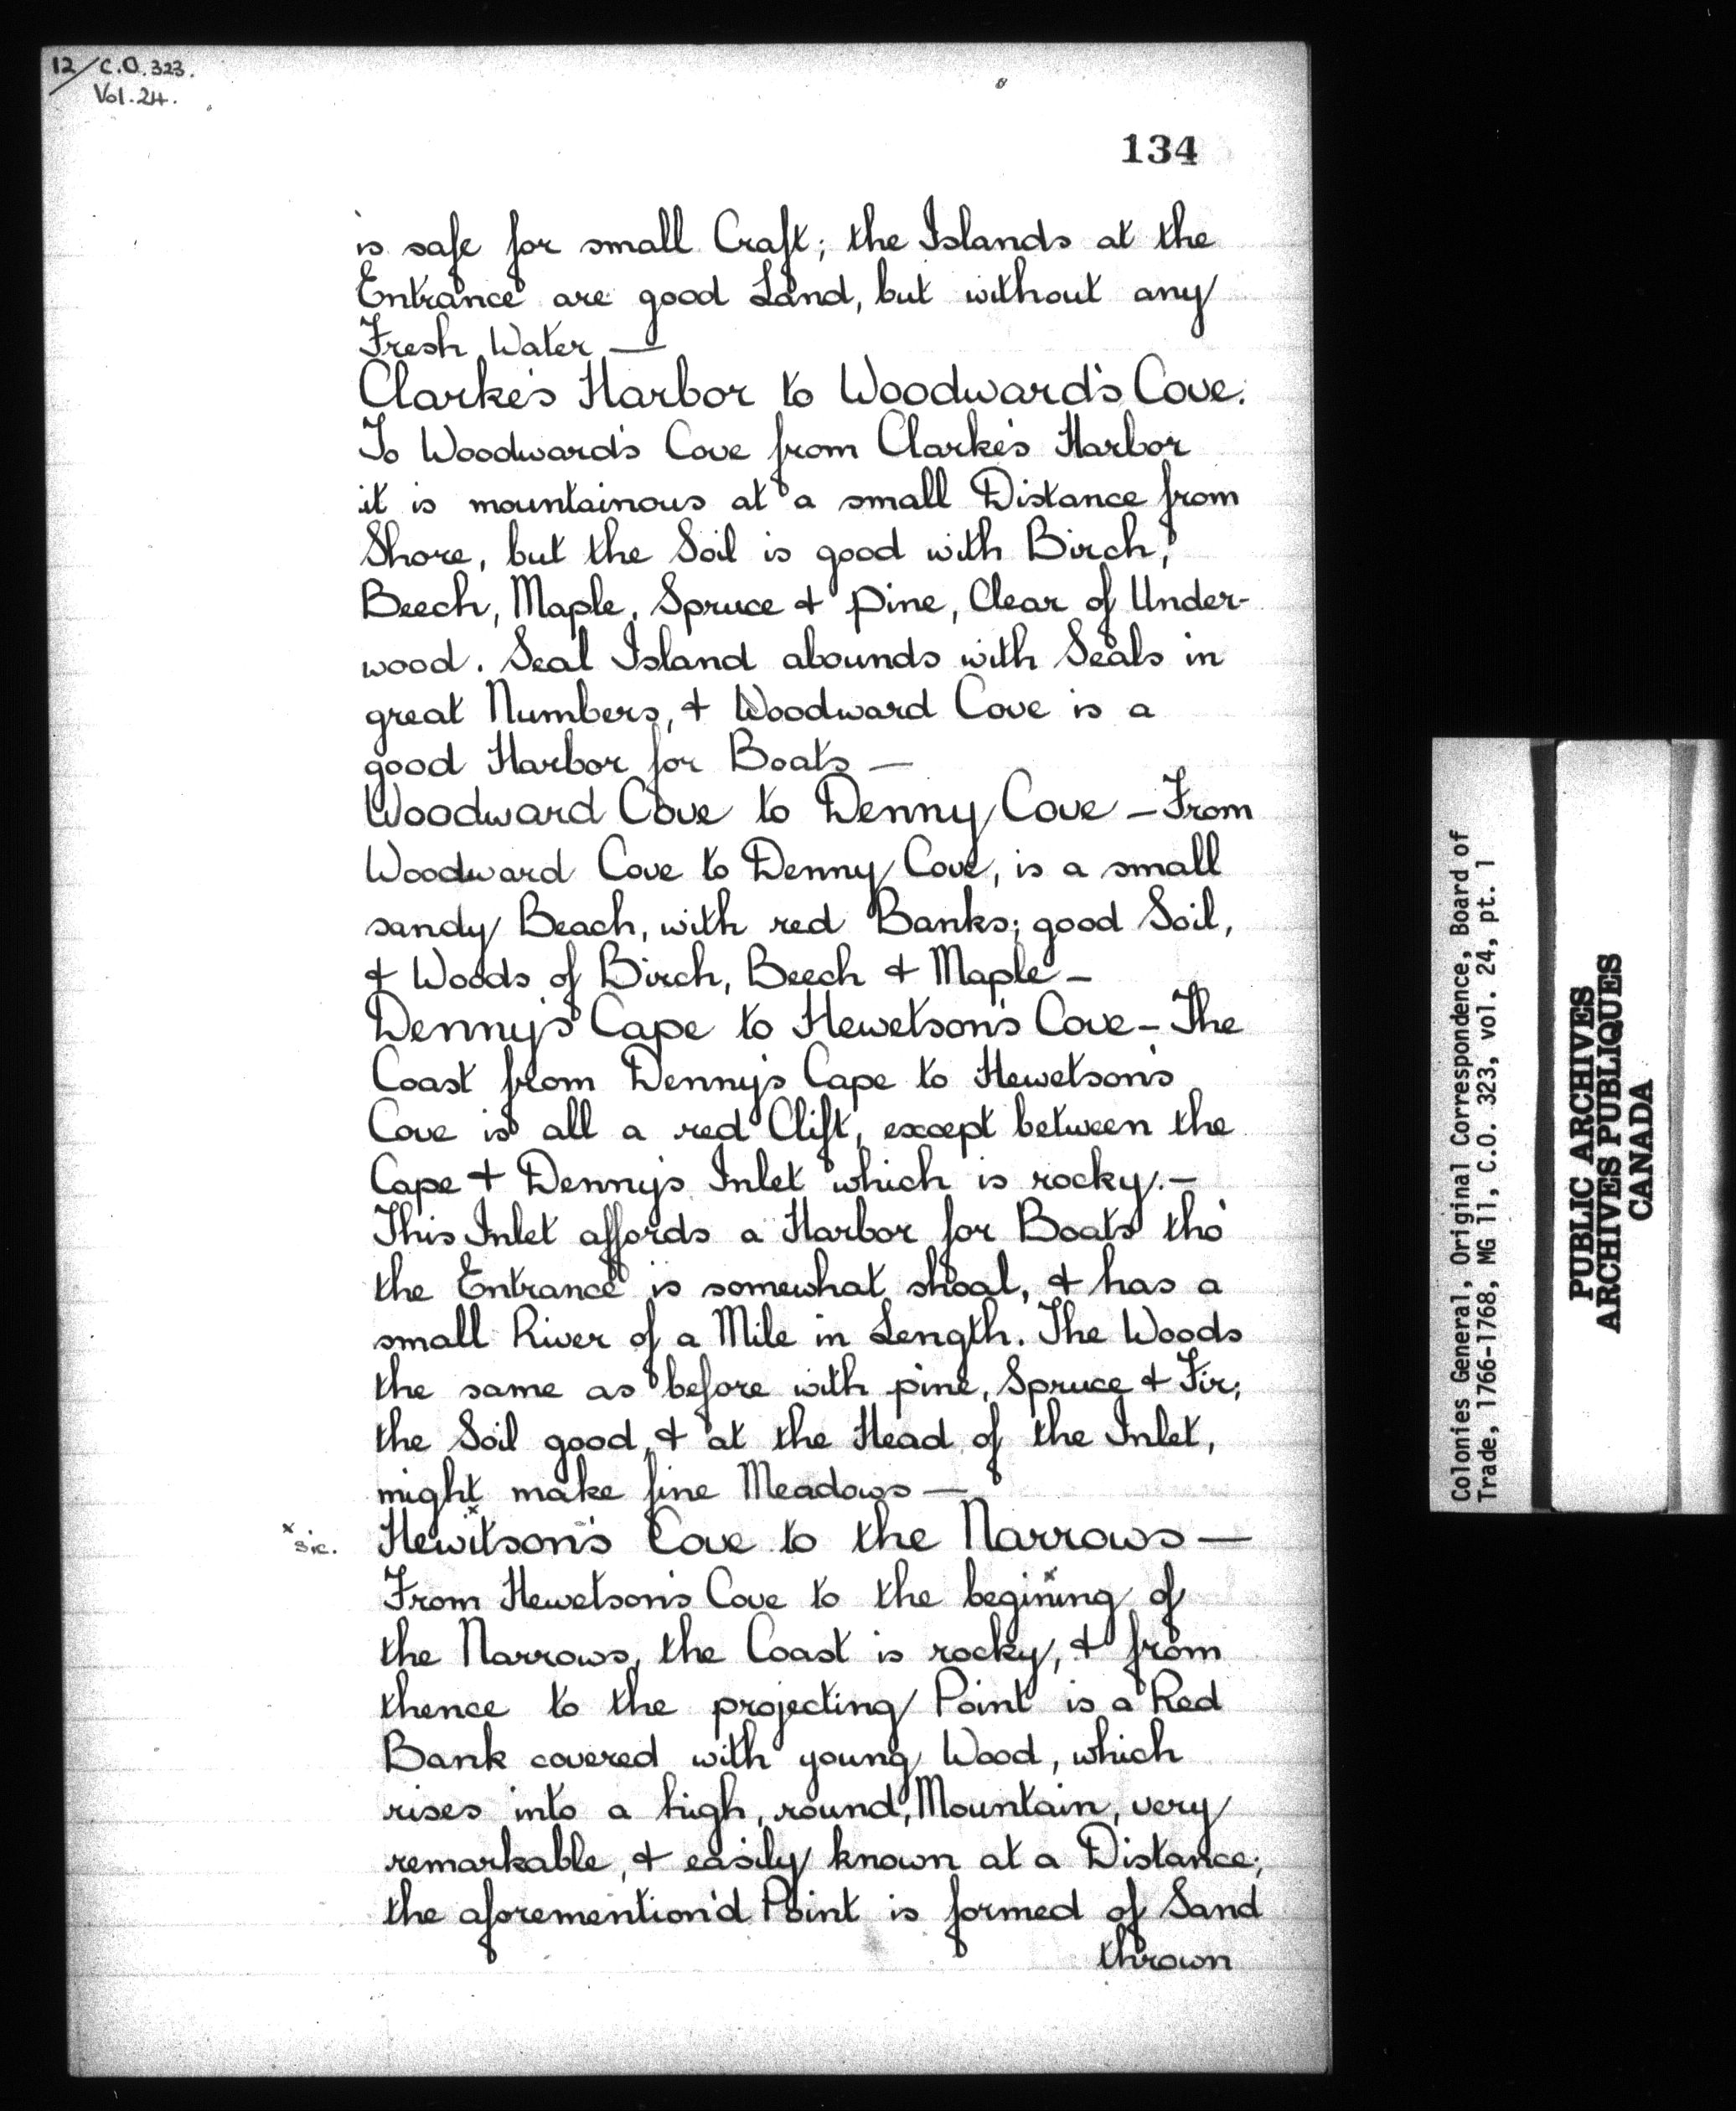 12/C.O. 323.
Vol. 24.
134
is safe for small Craft; the Islands at the
Entrance are good Land, but without any
Fresh Water —
Clarke's Harbor to Woodward's Cove.
To Woodward's Cove from Clarke's Harbor
it is mountainous at a small Distance from
Shore, but the Soil is good with Birch,
Beech, Maple, Spruce & pine, Clear of Under-
wood. Seal Island abounds with Seals in
great Numbers, & Woodward Cove is a
good Harbor for Boats —
Woodward Cove to Denny Cove — From
Woodward Cove to Denny Cove, is a small
sandy Beach, with red Banks; good Soil,
& Woods of Birch, Beech & Maple —
Denny's Cape to Hewetson's Cove — The
Coast from Denny's Cape to Hewetson's
Cove is all a red Clift, except between the
Cape & Denny's Inlet which is rocky. —
This Inlet affords a Harbor for Boats tho'
the Entrance is somewhat shoal, & has a
small River of a Mile in Length. The Woods
the same as before with pine, Spruce & Fir;
the Soil good, & at the Head of the Inlet,
might make fine Meadows —
x sic. Hewitson's x Cove to the Narrows —
From Hewetson's Cove to the begining x of
the Narrows, the Coast is rocky, & from
thence to the projecting Point is a Red
Bank covered with young Wood, which
rises into a high, round, Mountain, very
remarkable, & easily known at a Distance;
the aforemention'd Point is formed of Sand
thrown
Colonies General, Original Correspondence, Board of
Trade, 1766-1768, MG 11, C.O. 323, vol. 24, pt. 1
PUBLIC ARCHIVES
ARCHIVES PUBLIQUES
CANADA